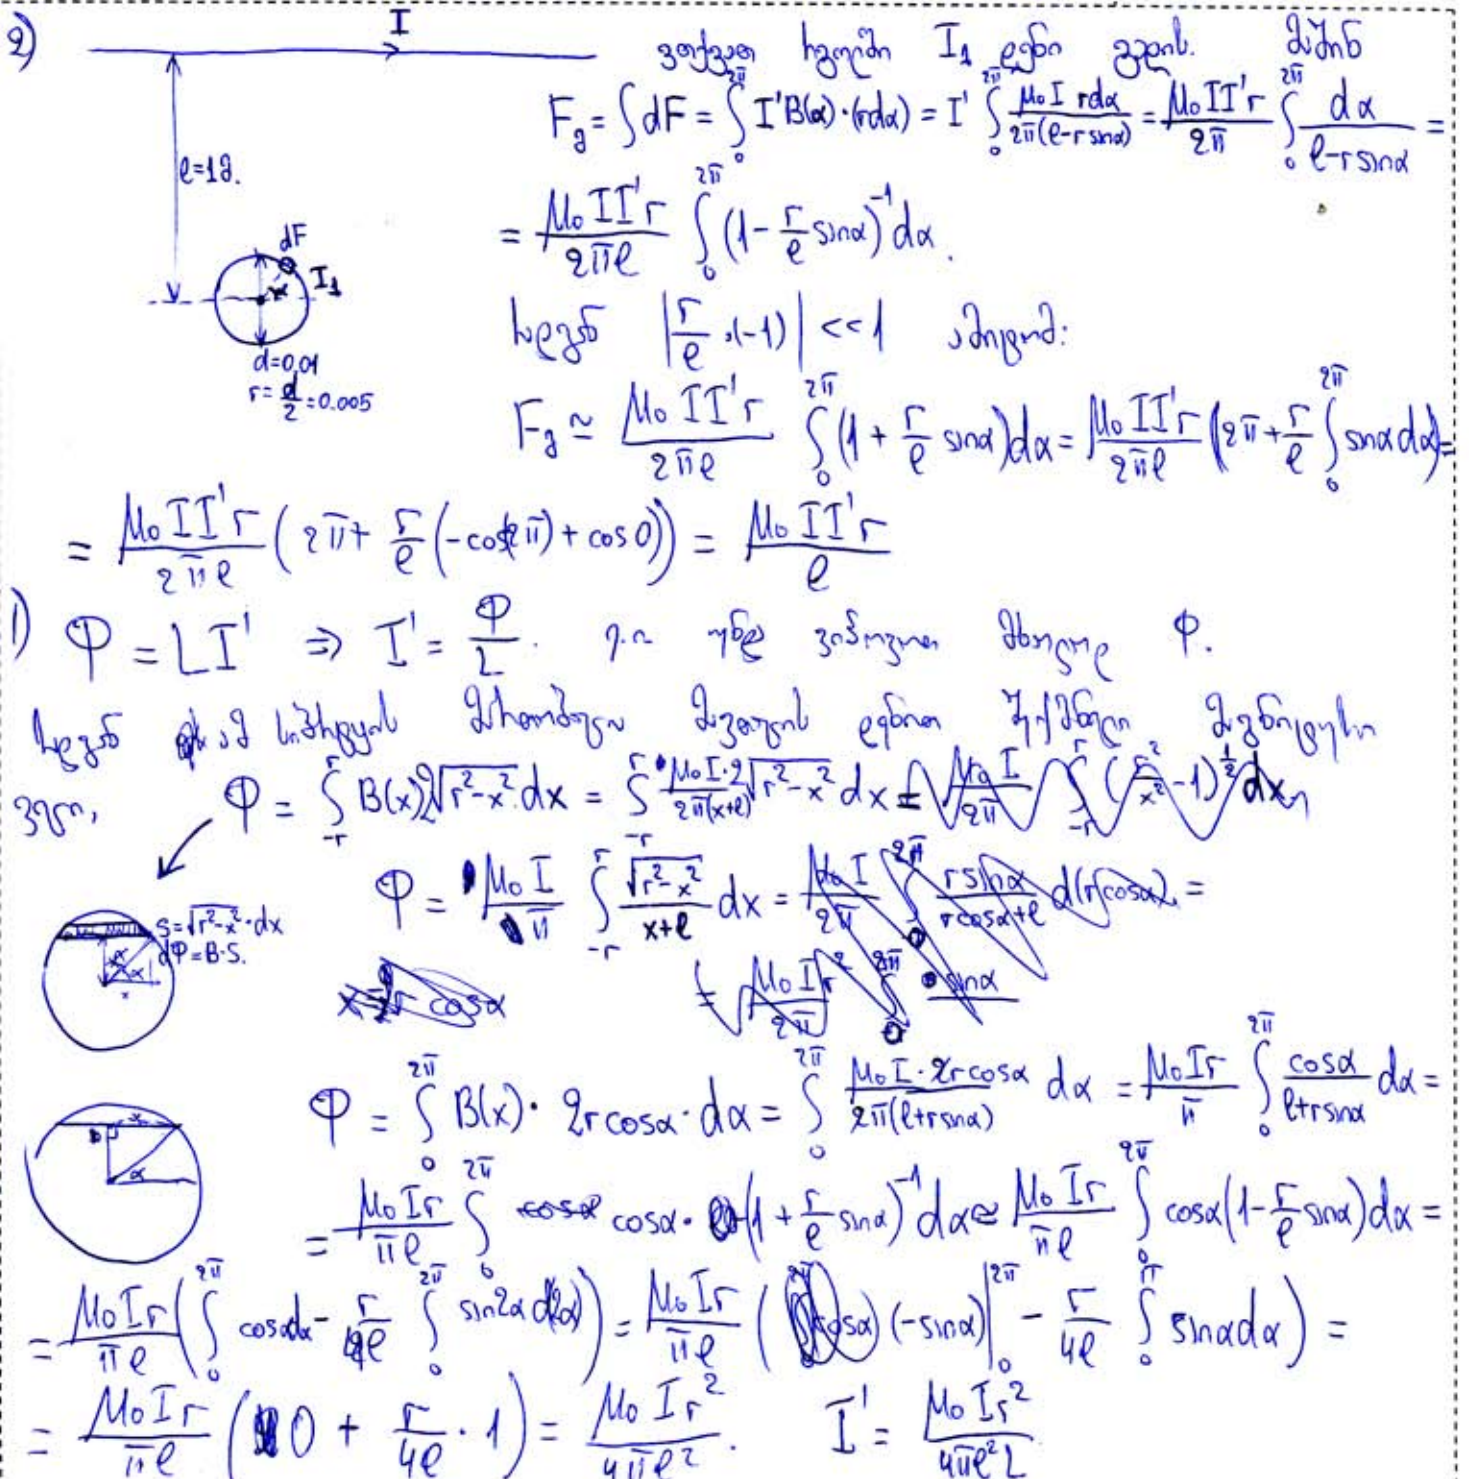 2) I ვთქვათ რგოლში I₁ დენი გადის. მაშინ
F_გ = ∫dF = ∫₀^{2π} I'B(α)·(rdα) = I' ∫₀^{2π} μ₀I rdα / 2π(ℓ-r sinα) = μ₀II'r / 2π ∫₀^{2π} dα / ℓ-r sinα =
ℓ=1მ.
= μ₀II'r / 2πℓ ∫₀^{2π} (1 - r/ℓ sinα)⁻¹ dα.
dF
I₁
α
რადგან |r/ℓ ·(-1)| <<1 ამიტომ:
d=0,01
r = d/2 = 0.005
F_გ ≃ μ₀II'r / 2πℓ ∫₀^{2π} (1 + r/ℓ sinα)dα = μ₀II'r / 2πℓ (2π + r/ℓ ∫₀^{2π} sinα dα) =
= μ₀II'r / 2πℓ (2π + r/ℓ (-cos(2π) + cos0)) = μ₀II'r / ℓ
1) Φ = LI' ⇒ I' = Φ/L. ე.ი უნდა ვიპოვოთ მხოლოდ Φ.
რადგან ამ სიბრტყის მართობული მავთულის დენით შექმნილი მაგნიტური
ველი, Φ = ∫₋ᵣ^r B(x)2√(r²-x²) dx = ∫₋ᵣ^r μ₀I·2 / 2π(x+ℓ) √(r²-x²) dx = μ₀I / 2π ∫₋ᵣ^r (r²/x² - 1)^{1/2} dx
Φ = μ₀I / π ∫₋ᵣ^r √(r²-x²) / x+ℓ dx = μ₀I / 2π ∫₀^{2π} r sinα / r cosα+ℓ d(r cosα) =
S=√(r²-x²)·dx
dΦ=B·S.
x = r cosα = μ₀Ir² / 2π ∫₀^{2π} sinα
Φ = ∫₀^{2π} B(x)· 2r cosα· dα = ∫₀^{2π} μ₀I·2r cosα / 2π(ℓ+r sinα) dα = μ₀Ir / π ∫₀^{2π} cosα / ℓ+r sinα dα =
= μ₀Ir / πℓ ∫₀^{2π} cosα cosα·(1 + r/ℓ sinα)⁻¹ dα ≈ μ₀Ir / πℓ ∫₀^{2π} cosα(1 - r/ℓ sinα)dα =
= μ₀Ir / πℓ (∫₀^{2π} cosα dα - r/4ℓ ∫₀^{2π} sin2α d(2α)) = μ₀Ir / πℓ ((cosα)(-sinα)|₀^{2π} - r/4ℓ ∫₀^π sinα dα) =
= μ₀Ir / πℓ (0 + r/4ℓ · 1) = μ₀Ir² / 4πℓ². I' = μ₀Ir² / 4πℓ²L